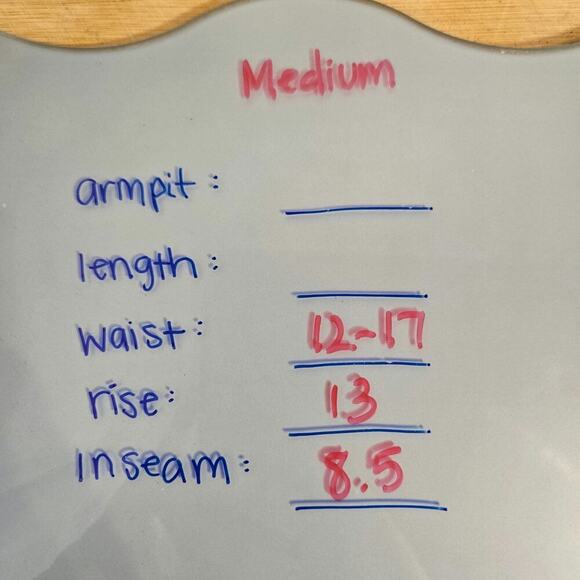 Medium
armpit:
length:
waist: 12-17
rise: 13
inseam: 8.5